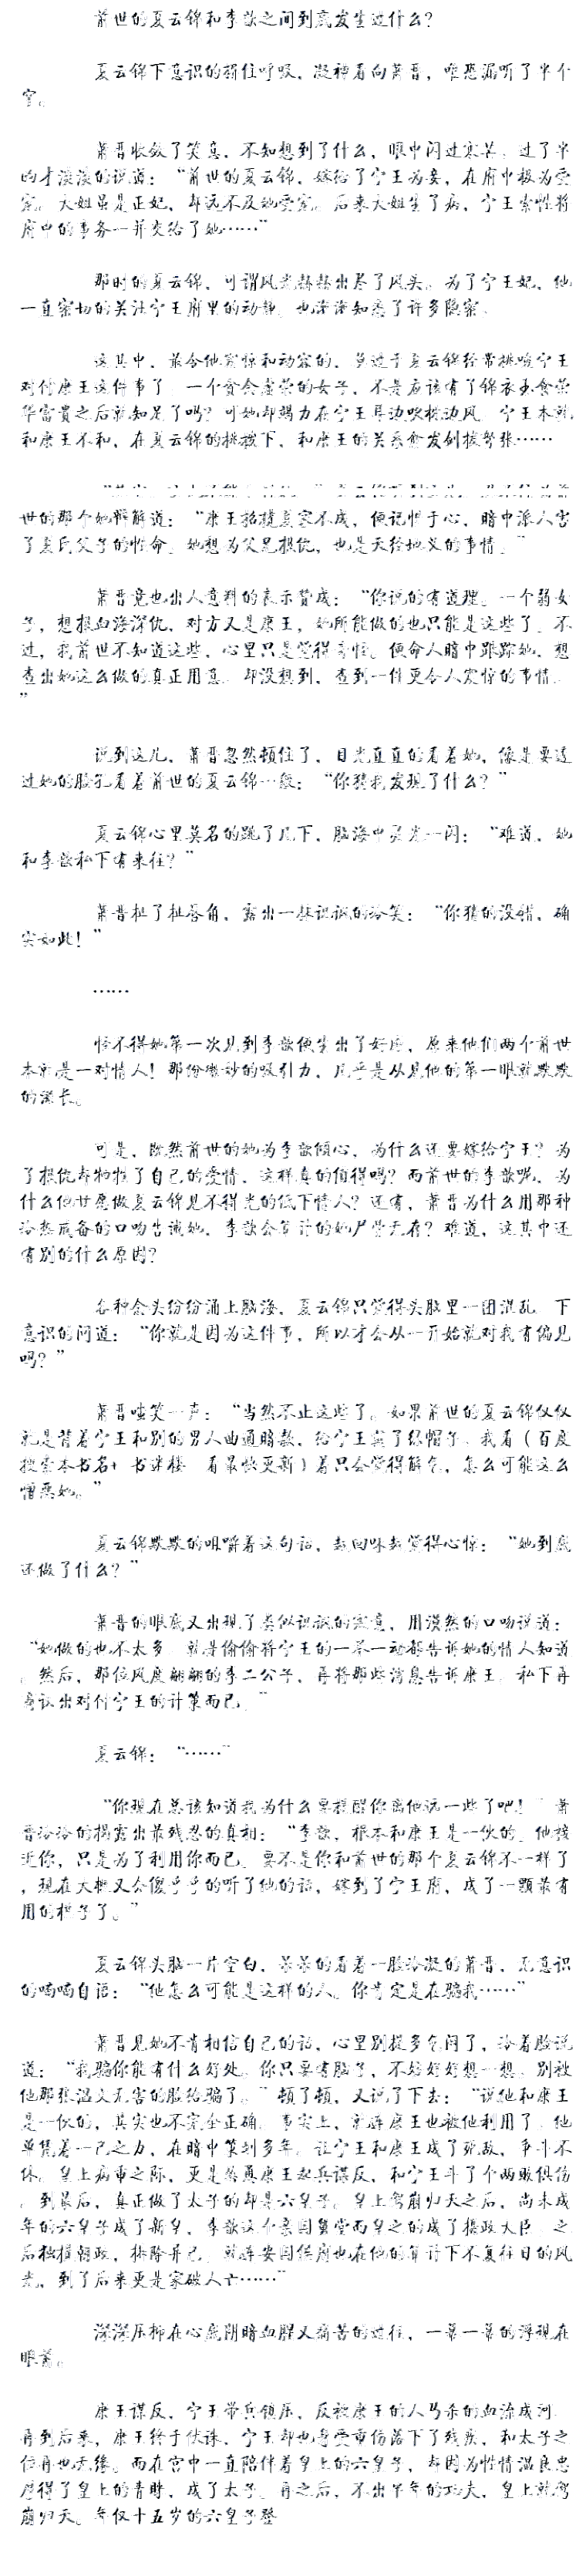 前世的夏云锦和李歆之间到底发生过什么？
夏云锦下意识的屏住呼吸，凝神看向萧晋，唯恐漏听了半个
字。
萧晋收敛了笑意，不知想到了什么，眼中闪过寒芒。过了半
晌才淡淡的说道：“前世的夏云锦，嫁给了宁王为妾，在府中极为受
宠。大姐虽是正妃，却远不及她受宠。后来大姐生了病，宁王索性将
府中的事务一并交给了她……”
那时的夏云锦，可谓风光赫赫出尽了风头。为了宁王妃，他
一直密切的关注宁王府里的动静。也渐渐知悉了许多隐密。
这其中，最令他震惊和动容的，莫过于夏云锦经常挑唆宁王
对付康王这件事了。一个贪慕虚荣的女子，不是应该有了锦衣玉食荣
华富贵之后就知足了吗？可她却竭力在宁王耳边吹枕边风。宁王本就
和康王不和，在夏云锦的挑拨下，和康王的关系愈发剑拔弩张……
世的那个她辩解道：“康王招揽夏家不成，便记恨于心，暗中派人害
了夏氏父子的性命。她想为父兄报仇，也是天经地义的事情。”
萧晋竟也出人意料的表示赞成：“你说的有道理。一个弱女
子，想报血海深仇，对方又是康王，她所能做的也只能是这些了。不
过，我前世不知道这些，心里只是觉得奇怪。便命人暗中跟踪她，想
查出她这么做的真正用意。却没想到，查到一件更令人震惊的事情。
”
说到这儿，萧晋忽然顿住了，目光直直的看着她，像是要透
过她的脸孔看着前世的夏云锦一般：“你猜我发现了什么？”
夏云锦心里莫名的跳了几下，脑海中灵光一闪：“难道，她
和李歆私下有来往？”
萧晋扯了扯唇角，露出一抹讥讽的冷笑：“你猜的没错，确
实如此！”
……
怪不得她第一次见到李歆便生出了好感，原来他们两个前世
本就是一对情人！那份微妙的吸引力，几乎是从见他的第一眼就默默
的滋长。
可是，既然前世的她为李歆倾心，为什么还要嫁给宁王？为
了报仇却牺牲了自己的爱情，这样真的值得吗？而前世的李歆呢，为
什么他甘愿做夏云锦见不得光的低下情人？还有，萧晋为什么用那种
冷然戒备的口吻告诫她，李歆会算计的她尸骨无存？难道，这其中还
有别的什么原因？
各种念头纷纷涌上脑海，夏云锦只觉得头脑里一团混乱。下
意识的问道：“你就是因为这件事，所以才会从一开始就对我有偏见
吗？”
萧晋嗤笑一声：“当然不止这些了。如果前世的夏云锦仅仅
就是背着宁王和别的男人曲通暗款，给宁王戴了绿帽子，我看（百度
搜索本书名+ 书迷楼 看最快更新）着只会觉得解气，怎么可能这么
憎恶她。”
夏云锦默默的咀嚼着这句话，越回味越觉得心惊：“她到底
还做了什么？”
萧晋的眼底又出现了类似讥讽的寒意，用漠然的口吻说道：
“她做的也不太多，就是偷偷将宁王的一举一动都告诉她的情人知道
。然后，那位风度翩翩的李二公子，再将那些消息告诉康王，私下再
商议出对付宁王的计策而已。”
夏云锦：“……”
“你现在总该知道我为什么要提醒你离他远一些了吧！”萧
晋冷冷的揭露出最残忍的真相：“李歆，根本和康王是一伙的。他接
近你，只是为了利用你而已。要不是你和前世的那个夏云锦不一样了
，现在大概又会傻乎乎的听了他的话，嫁到了宁王府，成了一颗最有
用的棋子了。”
夏云锦头脑一片空白，呆呆的看着一脸冷凝的萧晋，无意识
的喃喃自语：“他怎么可能是这样的人。你肯定是在骗我……”
萧晋见她不肯相信自己的话，心里别提多气闷了，冷着脸说
道：“我骗你能有什么好处。你只要有脑子，不妨好好想一想，别被
他那张温文无害的脸给骗了。”顿了顿，又说了下去：“说他和康王
是一伙的，其实也不完全正确。事实上，就连康王也被他利用了。他
单凭着一己之力，在暗中策划多年。让宁王和康王成了死敌，争斗不
休。皇上病重之际，更是怂恿康王起兵谋反，和宁王斗了个两败俱伤
。到最后，真正做了太子的却是六皇子。皇上驾崩归天之后，尚未成
年的六皇子成了新皇，李歆这个亲国舅堂而皇之的成了摄政大臣。之
后独揽朝政，排除异己。就连安国侯府也在他的算计下不复往日的风
光，到了后来更是家破人亡……”
深深压抑在心底阴暗血腥又痛苦的过往，一幕一幕的浮现在
眼前。
康王谋反，宁王带兵镇压，反被康王的人马杀的血流成河。
再到后来，康王终于伏诛，宁王却也身受重伤落下了残疾，和太子之
位再也无缘。而在宫中一直陪伴着皇上的六皇子，却因为性情温良忠
厚得了皇上的青睐，成了太子。再之后，不出半年的功夫，皇上就驾
崩归天。年仅十五岁的六皇子登